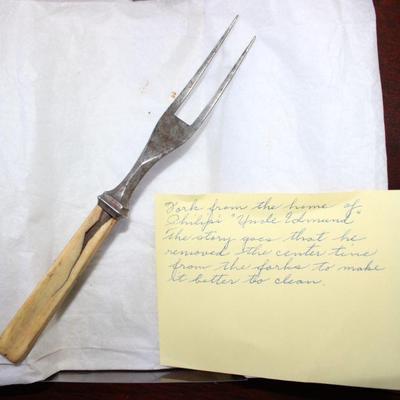 Fork from the home of
Philip's "Uncle Edmund"
The story goes that he
removed the center tine
from the forks to make
it better to clean.